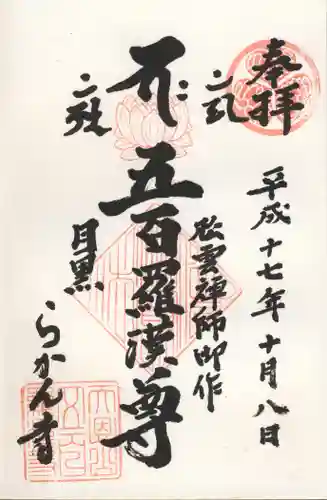 奉拝
平成十七年十月八日
松雲禅師御作
五百羅漢尊
目黒
らかん寺